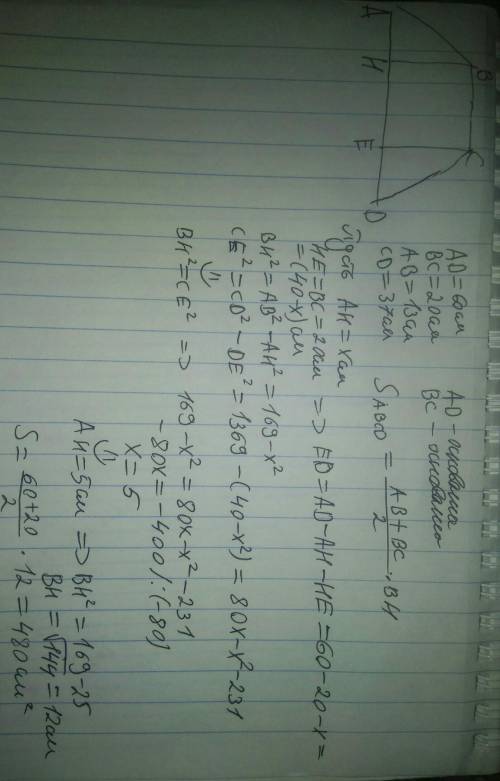 A
H
E
D
B
C
AD=60см
BC=20см
AB=13см
CD=37см
AD-основание
BC-основание
S ABCD = AB+BC / 2 · BH
Пусть AH=xсм
HE=BC=20см => ED=AD-AH-HE=60-20-x=
=(40-x)см
BH²=AB²-AH²=169-x²
CE²=CD²-DE²=1369-(40-x²)=80x-x²-231
BH²=CE² => 169-x²=80x-x²-231
-80x=-400/:(-80)
x=5
AH=5см => BH²=169-25
BH=√144=12см
S= 60+20 / 2 · 12=480см²